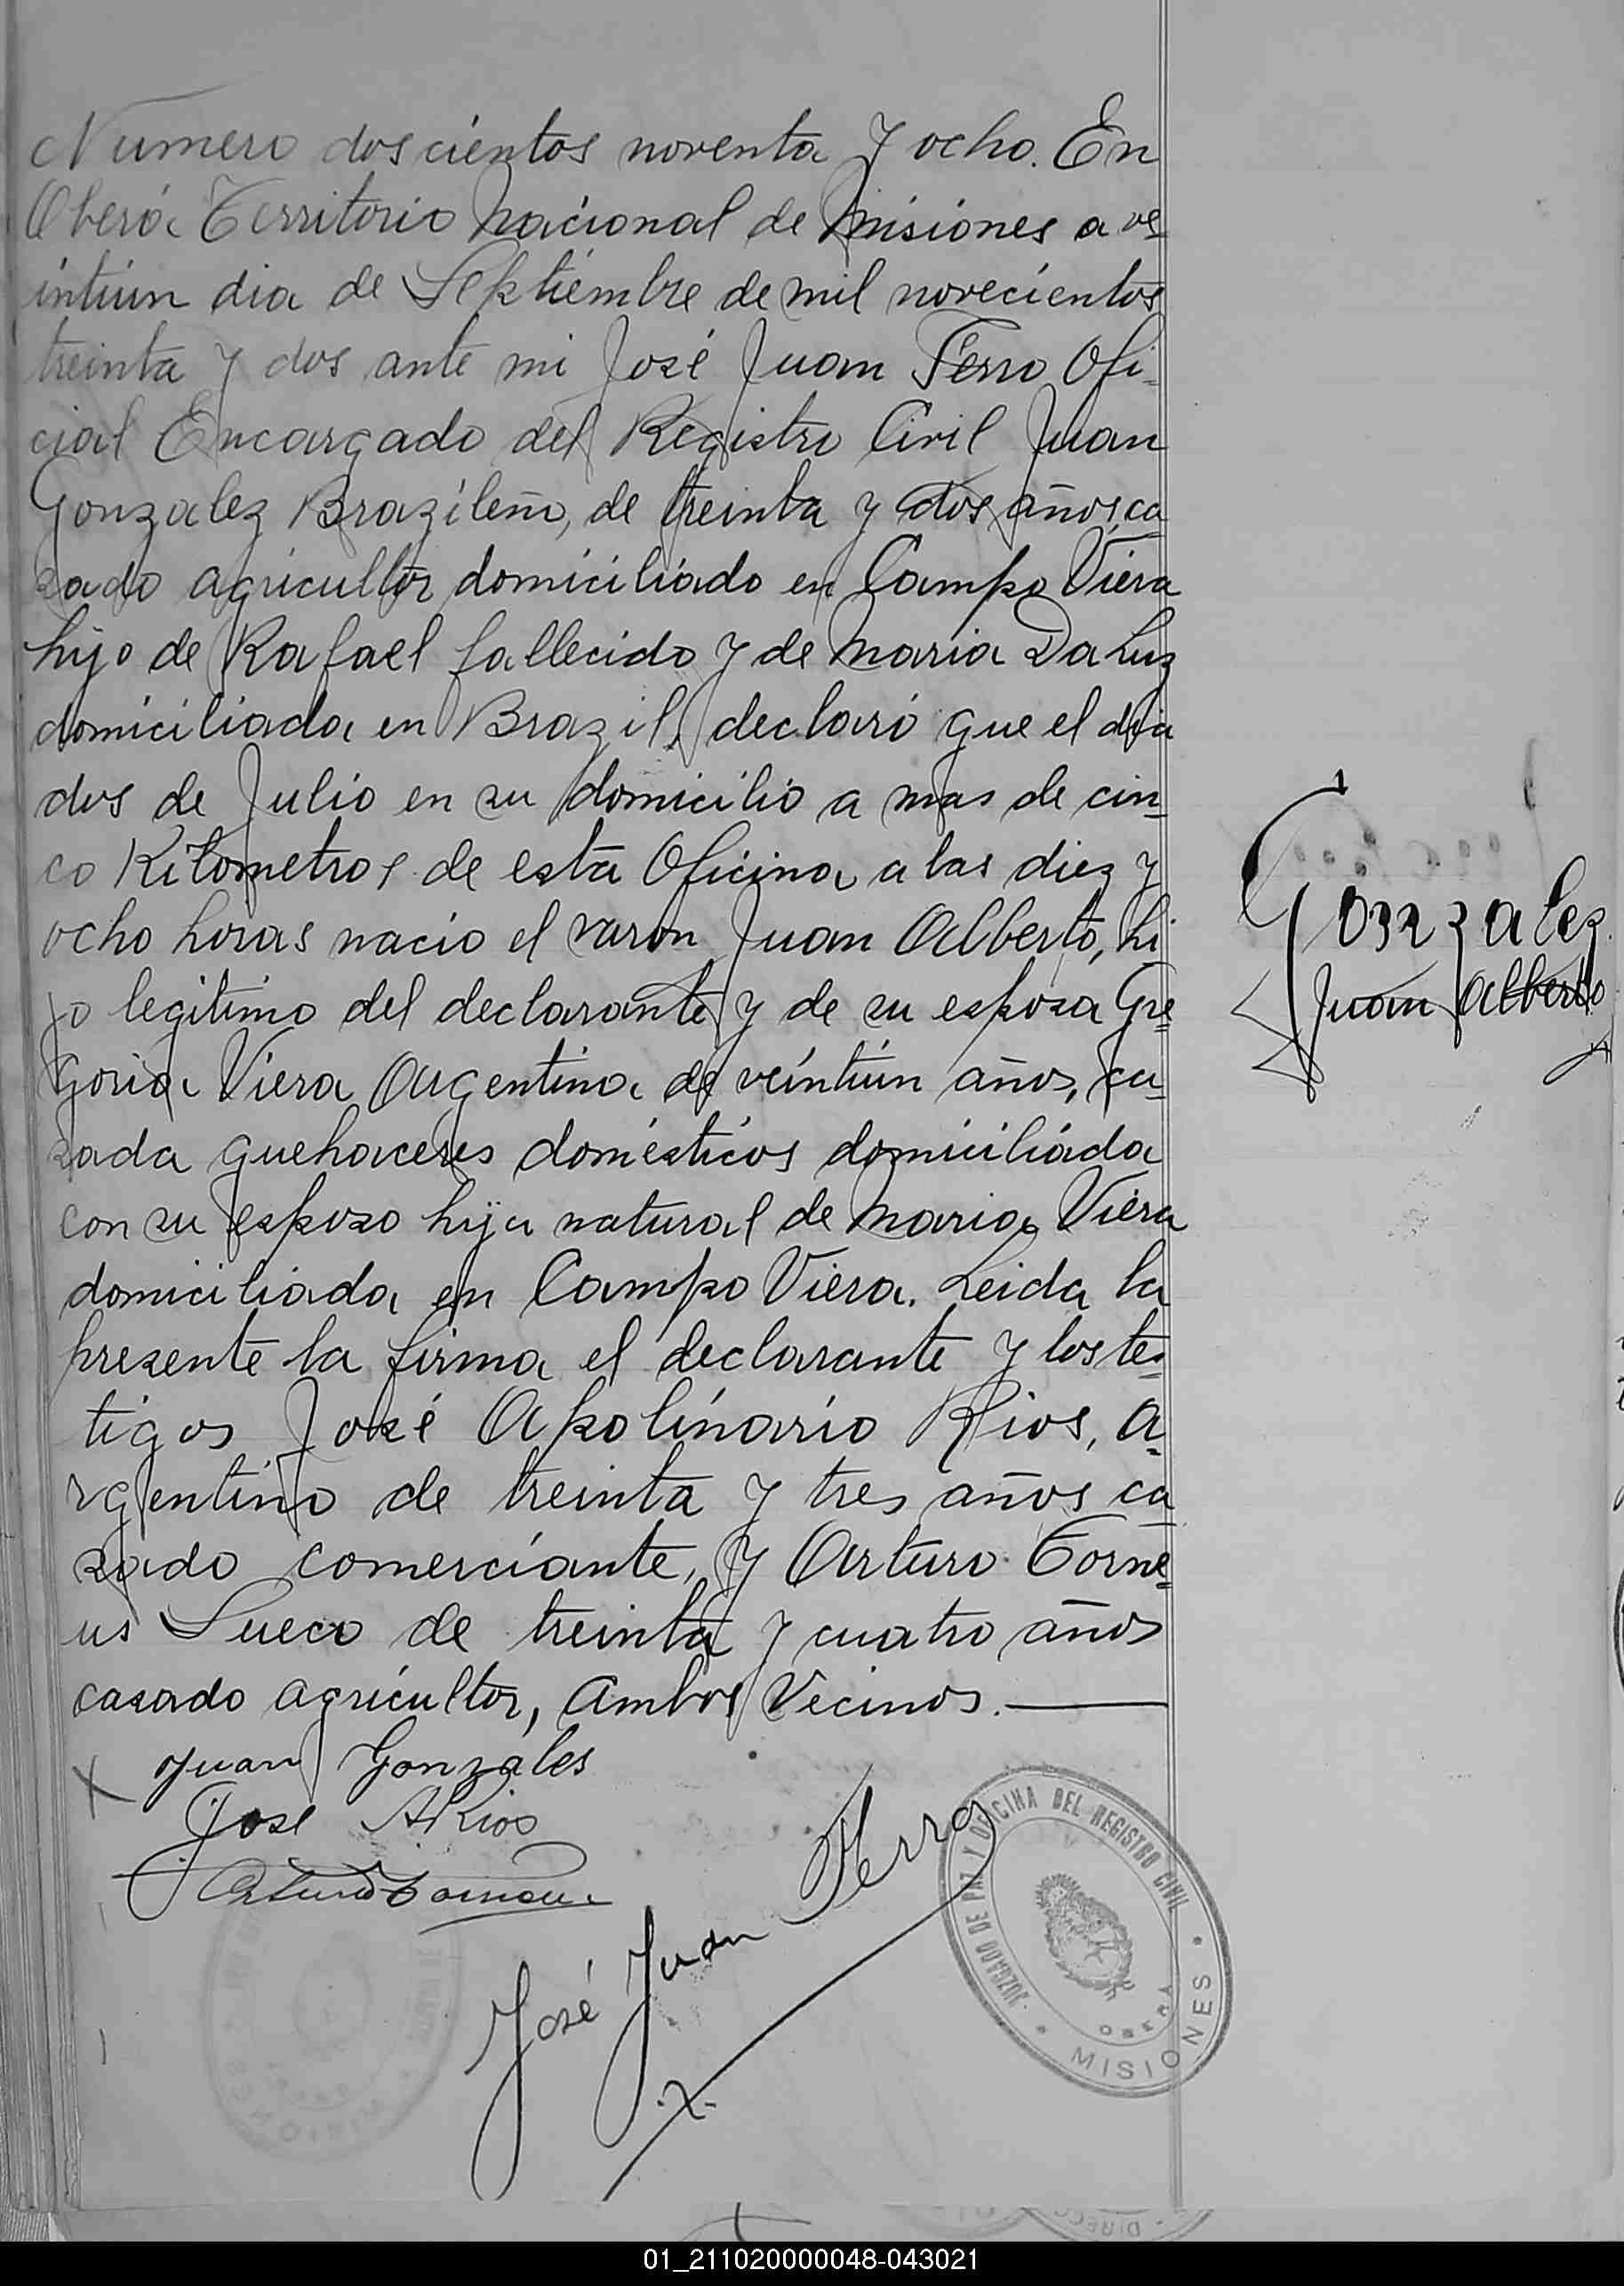 Numero doscientos noventa y ocho. En
Oberá Territorio Nacional de Misiones a ve
intiun dia de Septiembre de mil novecientos
treinta y dos ante mi José Juan Ferro Ofi-
cial Encargado del Registro Civil Juan
Gonzalez Brazileño, de treinta y dos años, ca
zado agricultor domiciliado en Campo Viera
hijo de Rafael fallecido y de Maria Da Luz
domiciliada en Brazil, declaró que el dia
dos de Julio en su domicilio a mas de cin-
co Kilometros de esta Oficina a las diez y
ocho horas nacio el varon Juan Alberto, hi
jo legitimo del declarante y de su esposa Gre-
goria Viera Argentina de veintiun años, ca-
zada quehaceres domésticos domiciliada
con su esposo hija natural de Maria Viera
domiciliada en Campo Viera. Leida la
presente la firma el declarante y los tes-
tigos José Apolinario Rios, A-
rgentino de treinta y tres años ca
zado comerciante, y Arturo Torne-
us Sueco de treinta y cuatro años
casado agricultor, Ambos Vecinos.
Gonzalez
Juan Alberto
Juan Gonzáles
José A Rios
Arturo Torneus
José Juan Ferro
JUZGADO DE PAZ Y OFICINA DEL REGISTRO CIVIL
OBERÁ
MISIONES
01_211020000048-043021